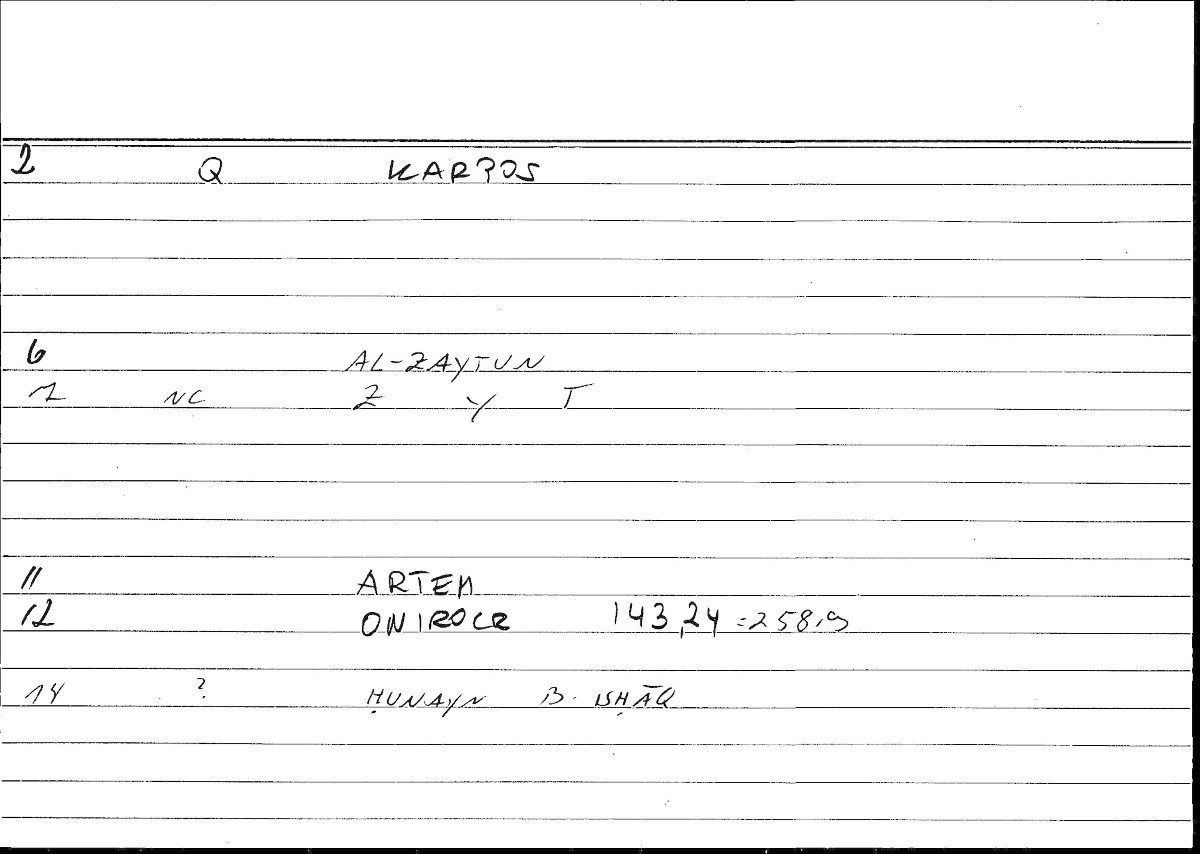 2 Q KARPOS
6 AL-ZAYTUN
7 NC Z Y T
11 ARTEM
12 ONIROCR 143,24 =258,9
14 ? ḤUNAYN B. ISḤĀQ